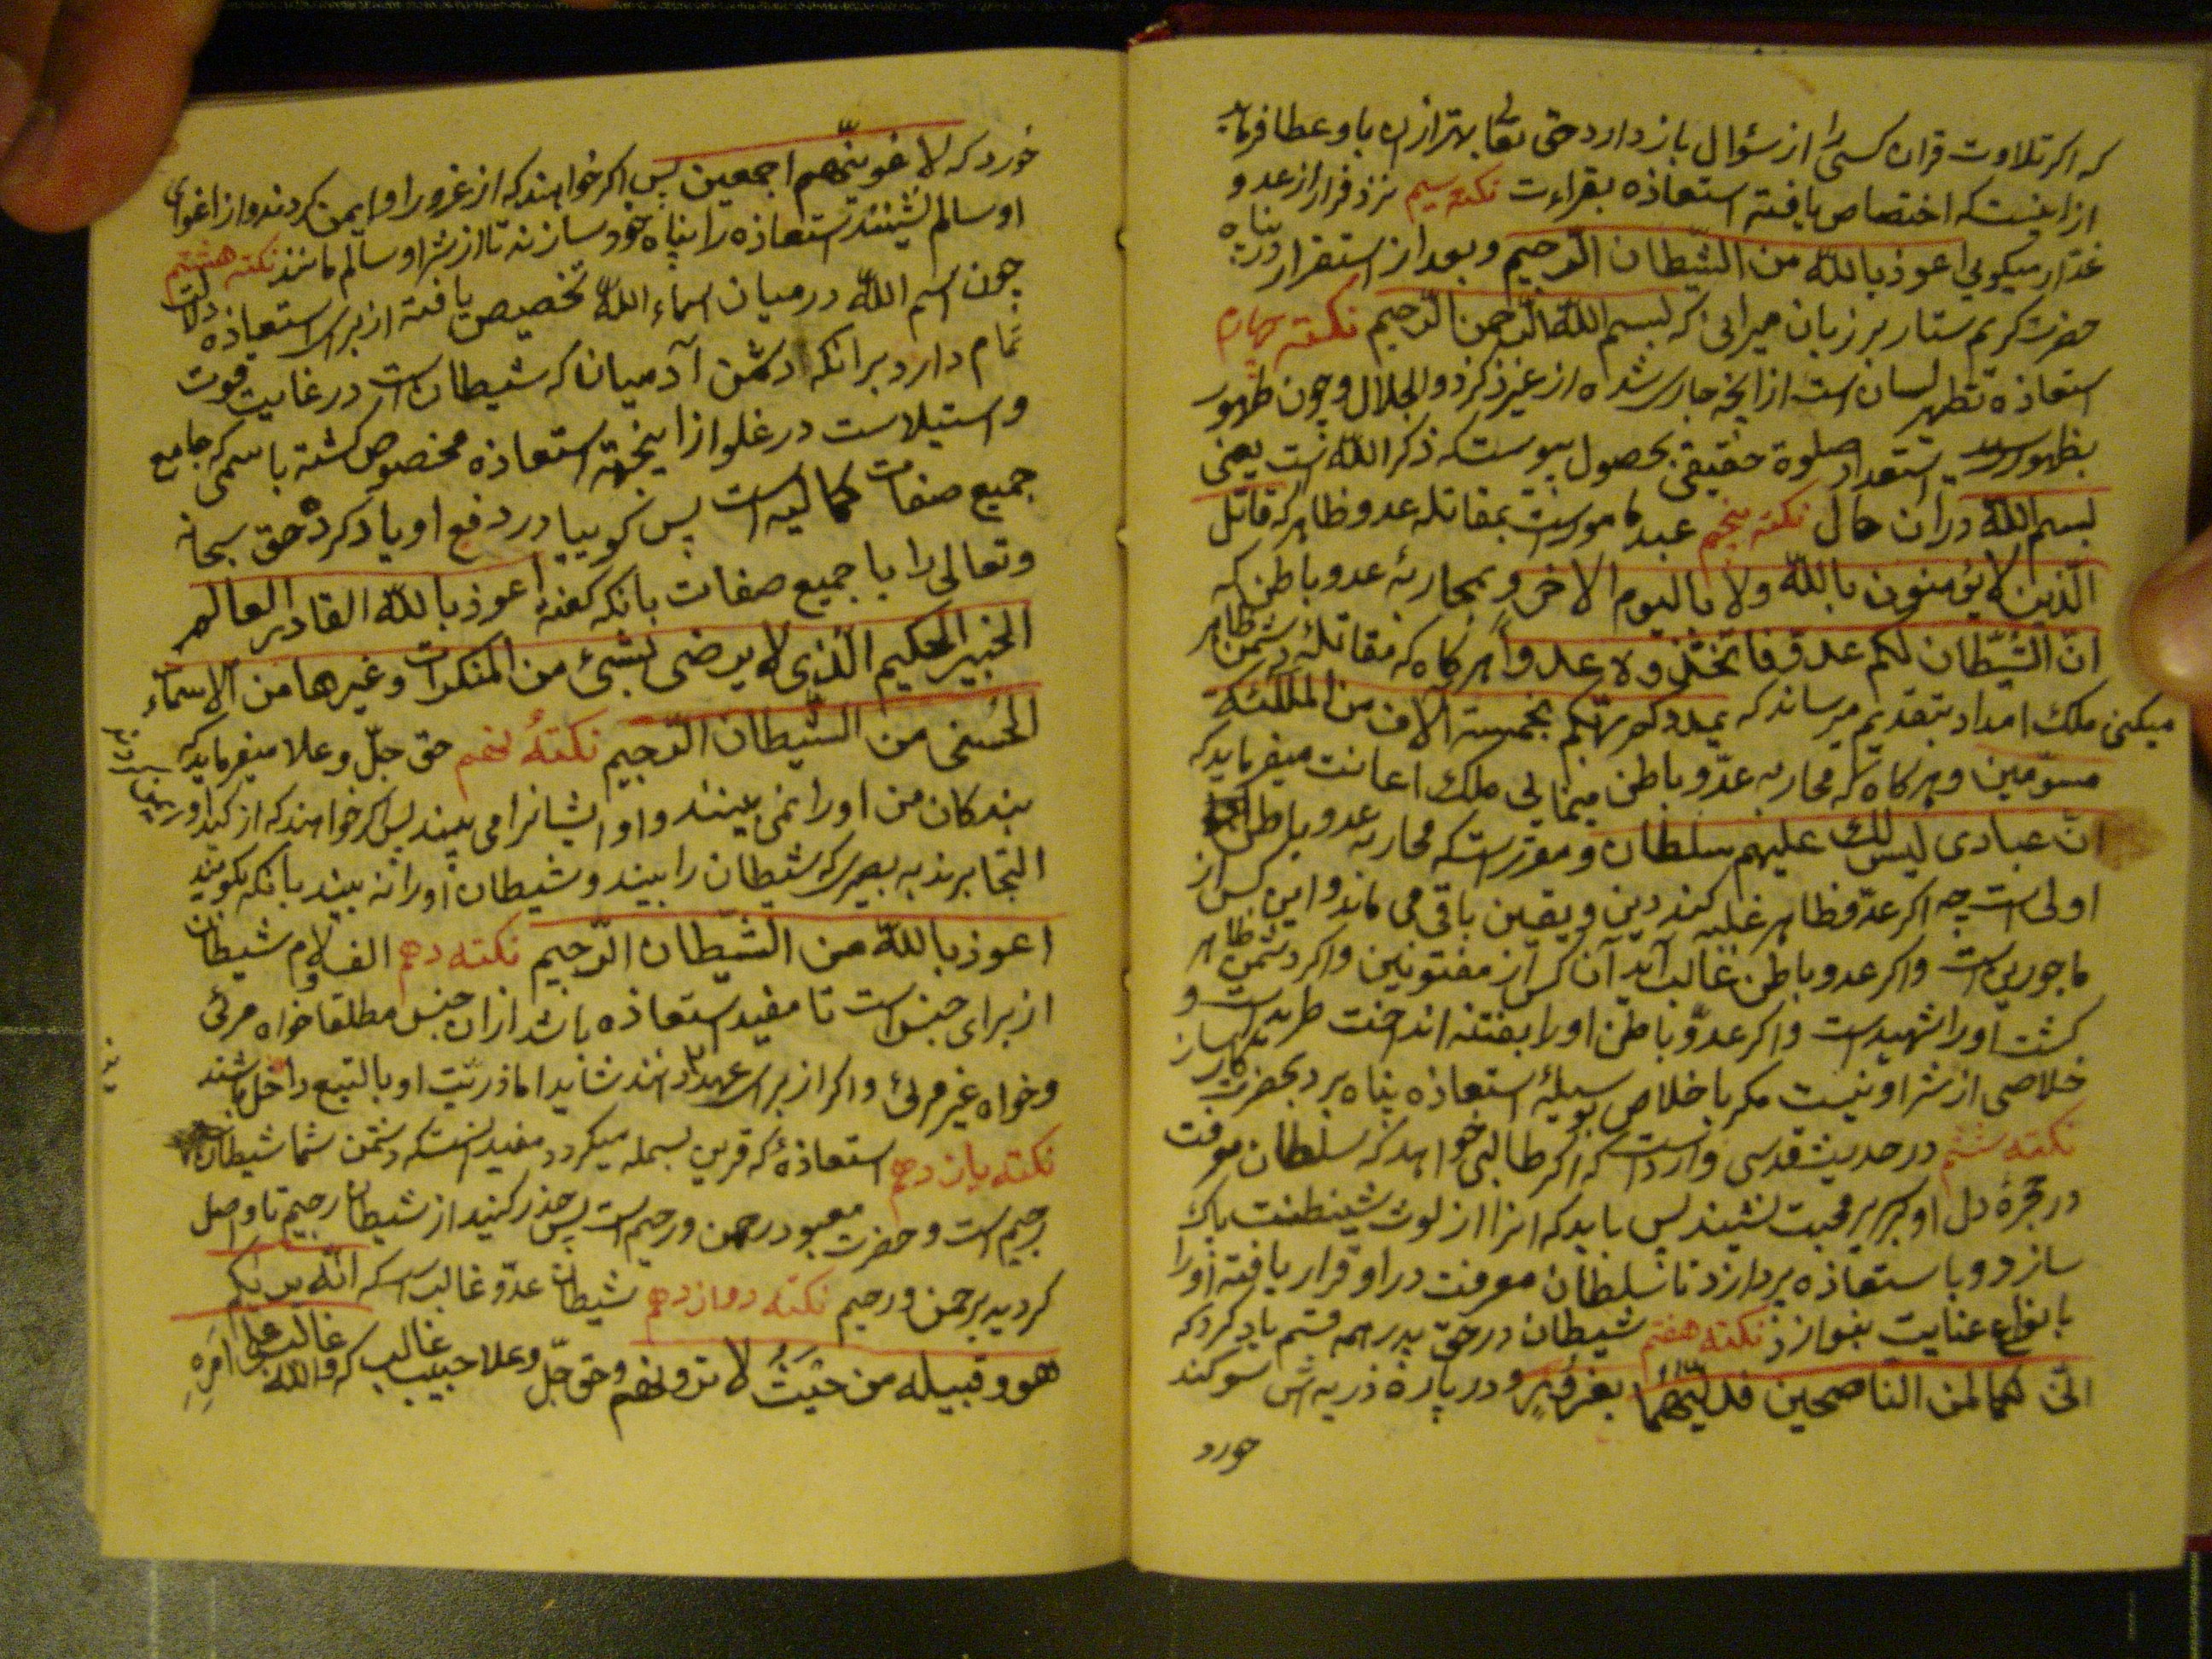 که اگر تلاوت قران کسی را از سؤال باز دارد حق تعا بهتر ازان باو عطا فرماید
ازاینست که اختصاص یافته استعاذه بقراءت نکته سیم نزد فرار از عدو
غدّار میکویی اعوذ بالله من الشّیطان الرّجیم و بعد از استقرار در پناه
حضرت کریم ستار بر زبان میرانی که بسم الله الرّحمن الرّحیم نکته چهارم
استعاذه تطهیر لسان است از انچه جاری شده از غیر ذکر ذو الجلال و چون طهور
بظهور رسد استعداد صلوة حقیقی بحصول پیوست که ذکر الله است یعنی
بسم الله دران حال نکته پنجم عبد مامورست بمقاتله عدو ظاهر که قاتل
الّذین لا یؤمنون بالله ولا بالیوم الاخر و بمحاربهٔ عدو باطن که
انّ الشّیطان لکم عدوّ فاتّخذوه عدوا هرکاه که مقاتلهٔ دشمن ظاهر
میکنی ملک امداد بتقدیم میرساند که یمددکم ربّکم بخمسة آلاف من الملٰئکه
مسوّمین و هرکاه که محاربه عدّو باطن مینمایی ملک اعانت میفرماید که
انّ عبادی لیس لک علیهم سلطان و مقررست که محاربه عدو باطن
اولی است چه اکر عدّو ظاهر غلبه کند دین و یقین باقی می ماند و این کس از
ماجورین است و اکر عدو باطن غالب آید آن کس از مفتونین و اکر دشمن ظاهر
کشت اورا شهیدست و اکر عدّو باطن اورا بفتنه انداخت طریدست و
خلاصی از شر او نیست مکر باخلاص بوسیلهٔ استعاذه پناه برد بحضرت کارساز
نکته ششم در حدیث قدسی واردست که اکر طالبی خواهد که سلطان معرفت
در حجرهٔ دل او بر سریر محبت نشیند پس باید که انرا از لوث شیطنت پاک
سازد و باستعاذه پردازد تا سلطان معرفت در او قرار یافته اورا
بانواع عنایت بنوازد نکته هفتم شیطان در حق پدر همه قسم یاد کرد که
انّی لکما لمن الناصحین فدلّیهما بغرور و در بارهٔ ذریه اش سوکند
خورد
خورد که لاغوینّهم اجمعین پس اکر خواهند که از غرور او ایمن کردند و از اغوای
او سالم نشینند استعاذه را پناه خود سازند تا از شر او سالم مانند نکته هشتم
چون اسم الله در میان اسماء الله تخصیص یافته از برای استعاذه دلالت
تمام دارد برانکه دشمن آدمیان که شیطان است در غایت قوت
و استیلاست در غلو ازاینجهة استعاذه مخصوص کشته باسمی که جامع
جمیع صفات کمالیه است پس کوییا در دفع او یاد کرده حق سبحانه
وتعالی را با جمیع صفات بانکه کفته اعوذ بالله القادر العالم
الخبیر الحکیم الّذی لا یرضی بشیٔ من المنکرات وغیرها من الاسماء
الحسنی من الشّیطان الرّجیم نکتهٔ نهم حق جلّ وعلا میفرماید که
بندکان من اورا نمی بینند و او ایشانرا می بیند پس اکر خواهند که از کید او
التجا برند به بصیری که شیطان را بیند و شیطان اورا نه بیند بانکه کویند
اعوذ بالله من الشّیطان الرّجیم نکته دهم الف و لام شیطان
از برای جنس است تا مفید استعاذه باشد ازان جنس مطلقا خواه مرئی
و خواه غیر مرئی و اکر از برای عهد دانند شاید اما ذریّت او بالتبع داخل باشند
نکته یازدهم استعاذهٔ که قرین بسمله میکردد مفید انست که دشمن شما شیطان
رجیم است و حضرت معبود رحمن و رحیم است پس حذر کنید از شیطان رجیم تا واصل
کردید برحمن و رحیم نکته دوازدهم شیطان عدّو غالب است که انّه یریکم
هو وقبیله من حیث لا ترونهم و حق جلّ وعلا حبیب غالب که والله غالب علی امره